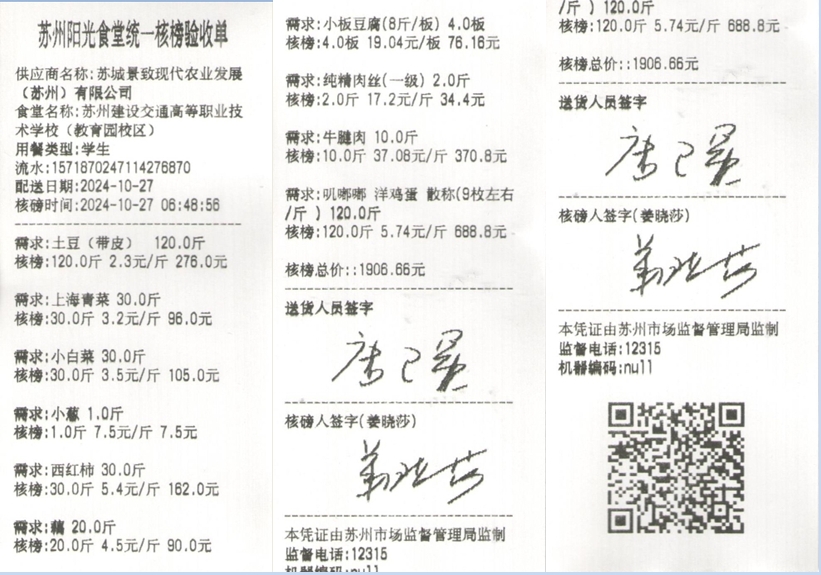 苏州阳光食堂统一核榜验收单
供应商名称:苏城景致现代农业发展
（苏州）有限公司
食堂名称:苏州建设交通高等职业技
术学校（教育园校区）
用餐类型:学生
流水:1571870247114276870
配送日期:2024-10-27
核磅时间:2024-10-27 06:48:56
需求:土豆（带皮） 120.0斤
核榜:120.0斤 2.3元/斤 276.0元
需求:上海青菜 30.0斤
核榜:30.0斤 3.2元/斤 96.0元
需求:小白菜 30.0斤
核榜:30.0斤 3.5元/斤 105.0元
需求:小葱 1.0斤
核榜:1.0斤 7.5元/斤 7.5元
需求:西红柿 30.0斤
核榜:30.0斤 5.4元/斤 162.0元
需求:藕 20.0斤
核榜:20.0斤 4.5元/斤 90.0元
需求:小板豆腐(8斤/板) 4.0板
核榜:4.0板 19.04元/板 76.16元
需求:纯精肉丝(一级) 2.0斤
核榜:2.0斤 17.2元/斤 34.4元
需求:牛腱肉 10.0斤
核榜:10.0斤 37.08元/斤 370.8元
需求:叽嘟嘟 洋鸡蛋 散称(9枚左右
/斤 ) 120.0斤
核榜:120.0斤 5.74元/斤 688.8元
核榜总价::1906.66元
送货人员签字
核磅人签字(姜晓莎)
本凭证由苏州市场监督管理局监制
监督电话:12315
机器编码:null
/斤 ) 120.0斤
核榜:120.0斤 5.74元/斤 688.8元
核榜总价::1906.66元
送货人员签字
核磅人签字(姜晓莎)
本凭证由苏州市场监督管理局监制
监督电话:12315
机器编码:null